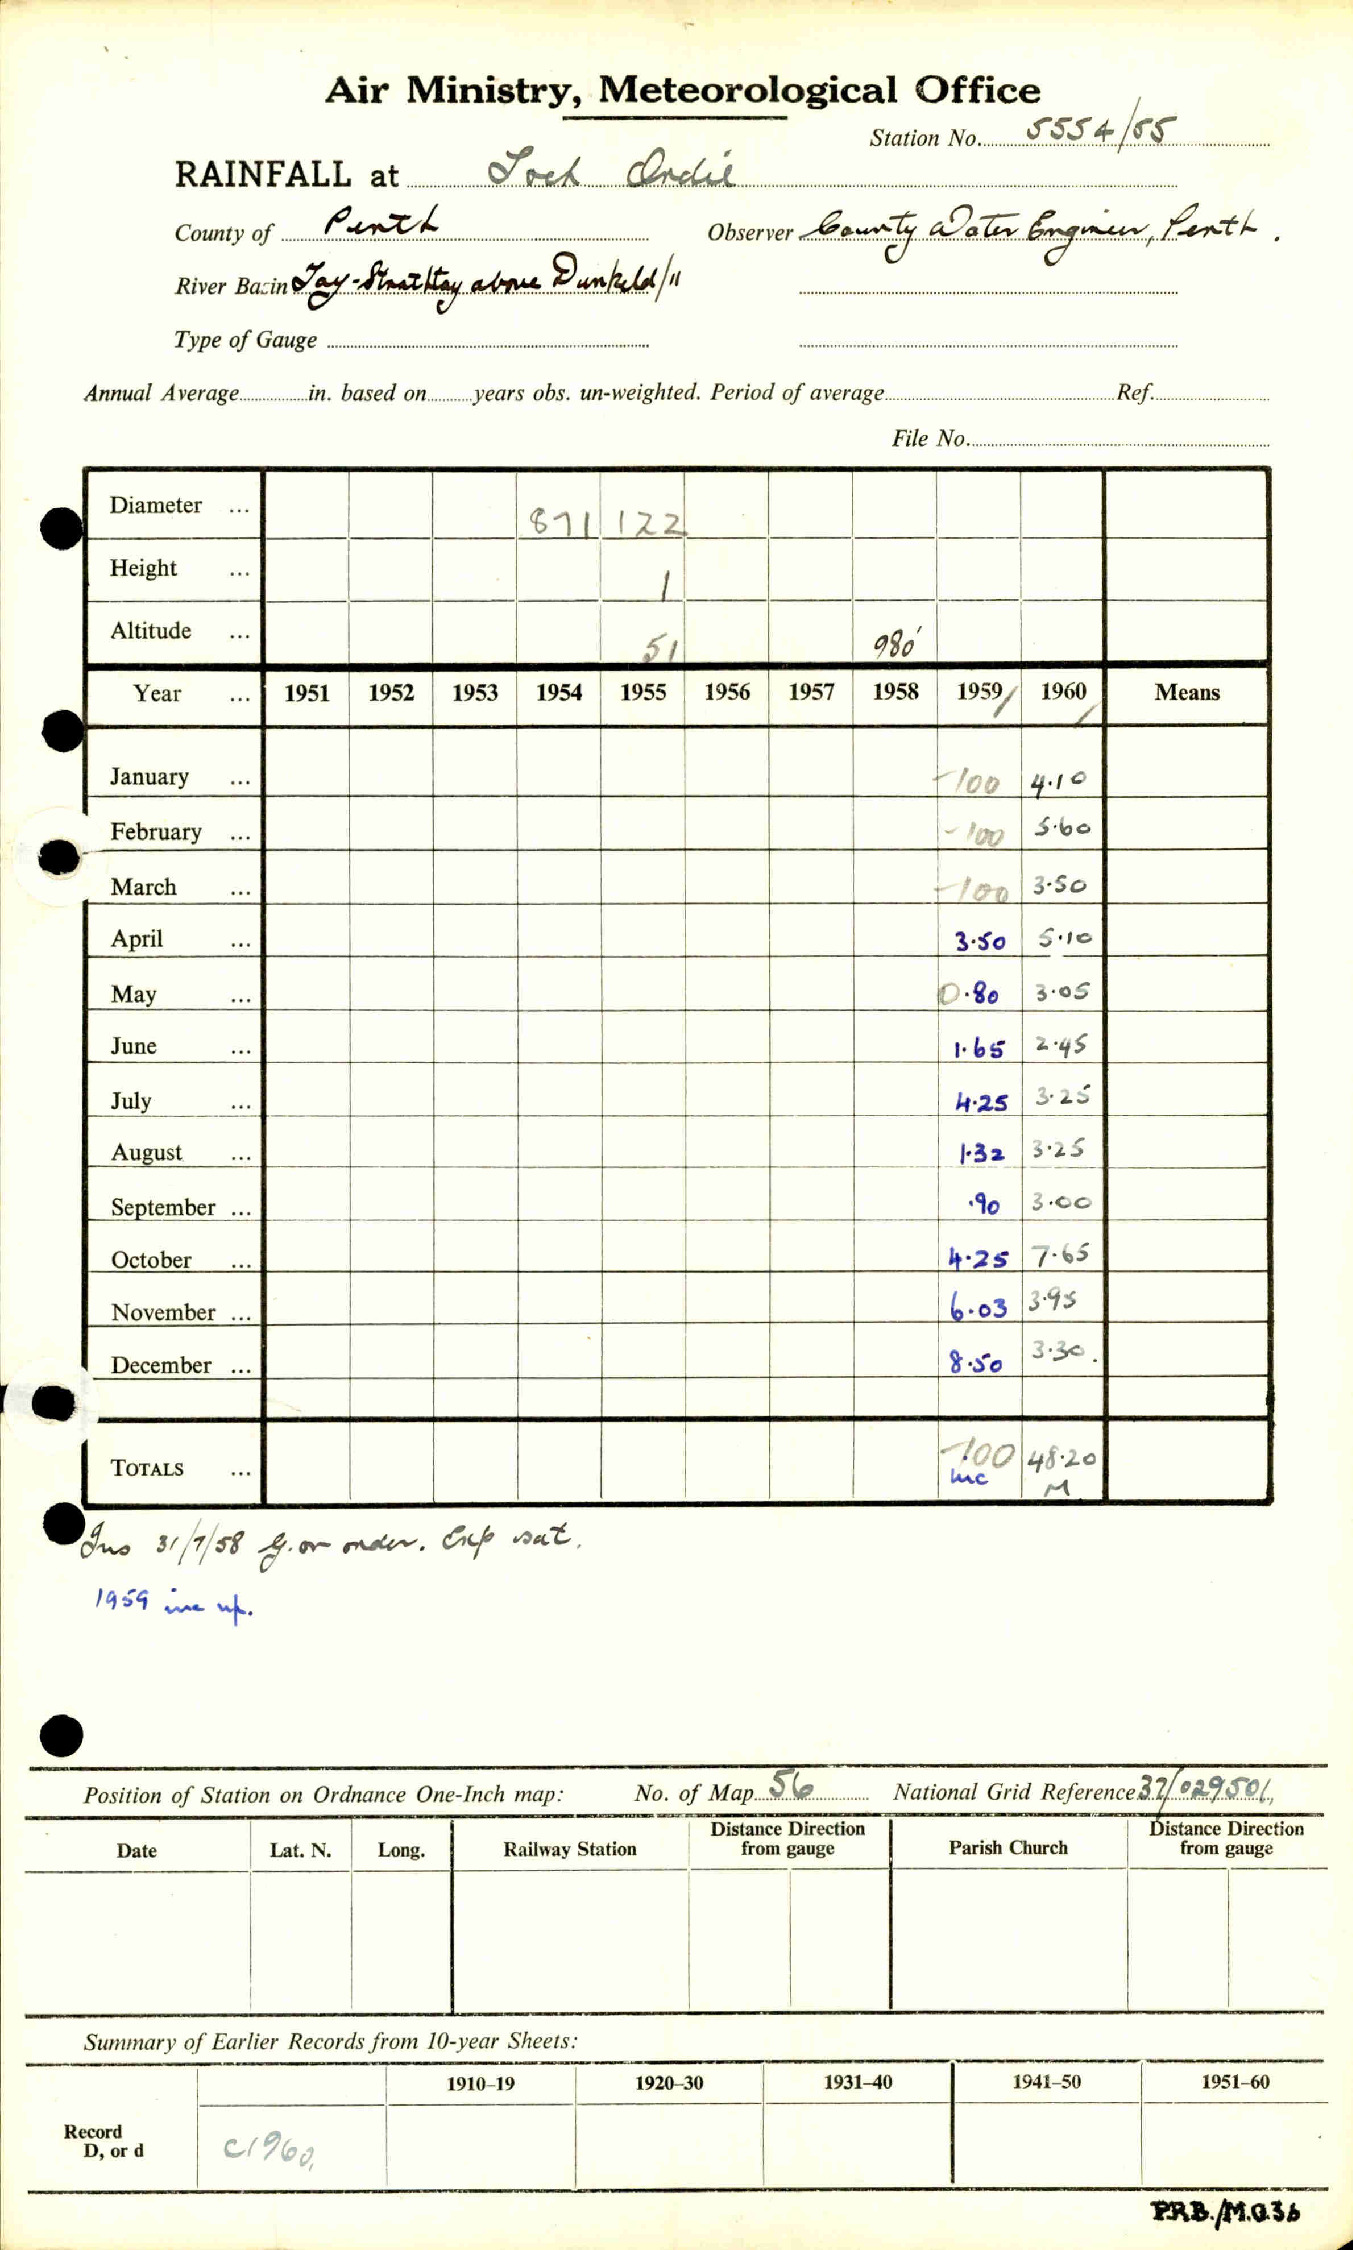 Air Ministry, Meteorological Office
Station No. 5554/55
RAINFALL at Loch Ordie
County of Perth Observer County Water Engineer, Perth.
River Basin Tay-Strathtay above Dunkeld/11
Type of Gauge
Annual Average in. based on years obs. un-weighted. Period of average Ref.
File No.
Diameter ... 871 122
Height ... 1
Altitude ... 51 980'
Year ... 1951 1952 1953 1954 1955 1956 1957 1958 1959/ 1960/ Means
January ... -100 4.10
February ... -100 5.60
March ... -100 3.50
April ... 3.50 5.10
May ... 0.80 3.05
June ... 1.65 2.45
July ... 4.25 3.25
August ... 1.32 3.25
September ... .90 3.00
October ... 4.25 7.65
November ... 6.03 3.95
December ... 8.50 3.30.
TOTALS ... -100 48.20
inc M
Ins 31/7/58 G. on order. Exp sat.
1959 inc up.
Position of Station on Ordnance One-Inch map: No. of Map 56 National Grid Reference 37/029501
Date Lat. N. Long. Railway Station Distance Direction from gauge Parish Church Distance Direction from gauge
Summary of Earlier Records from 10-year Sheets:
1910–19 1920–30 1931–40 1941–50 1951–60
Record
D, or d C1960,
P.R.B./M.O.36